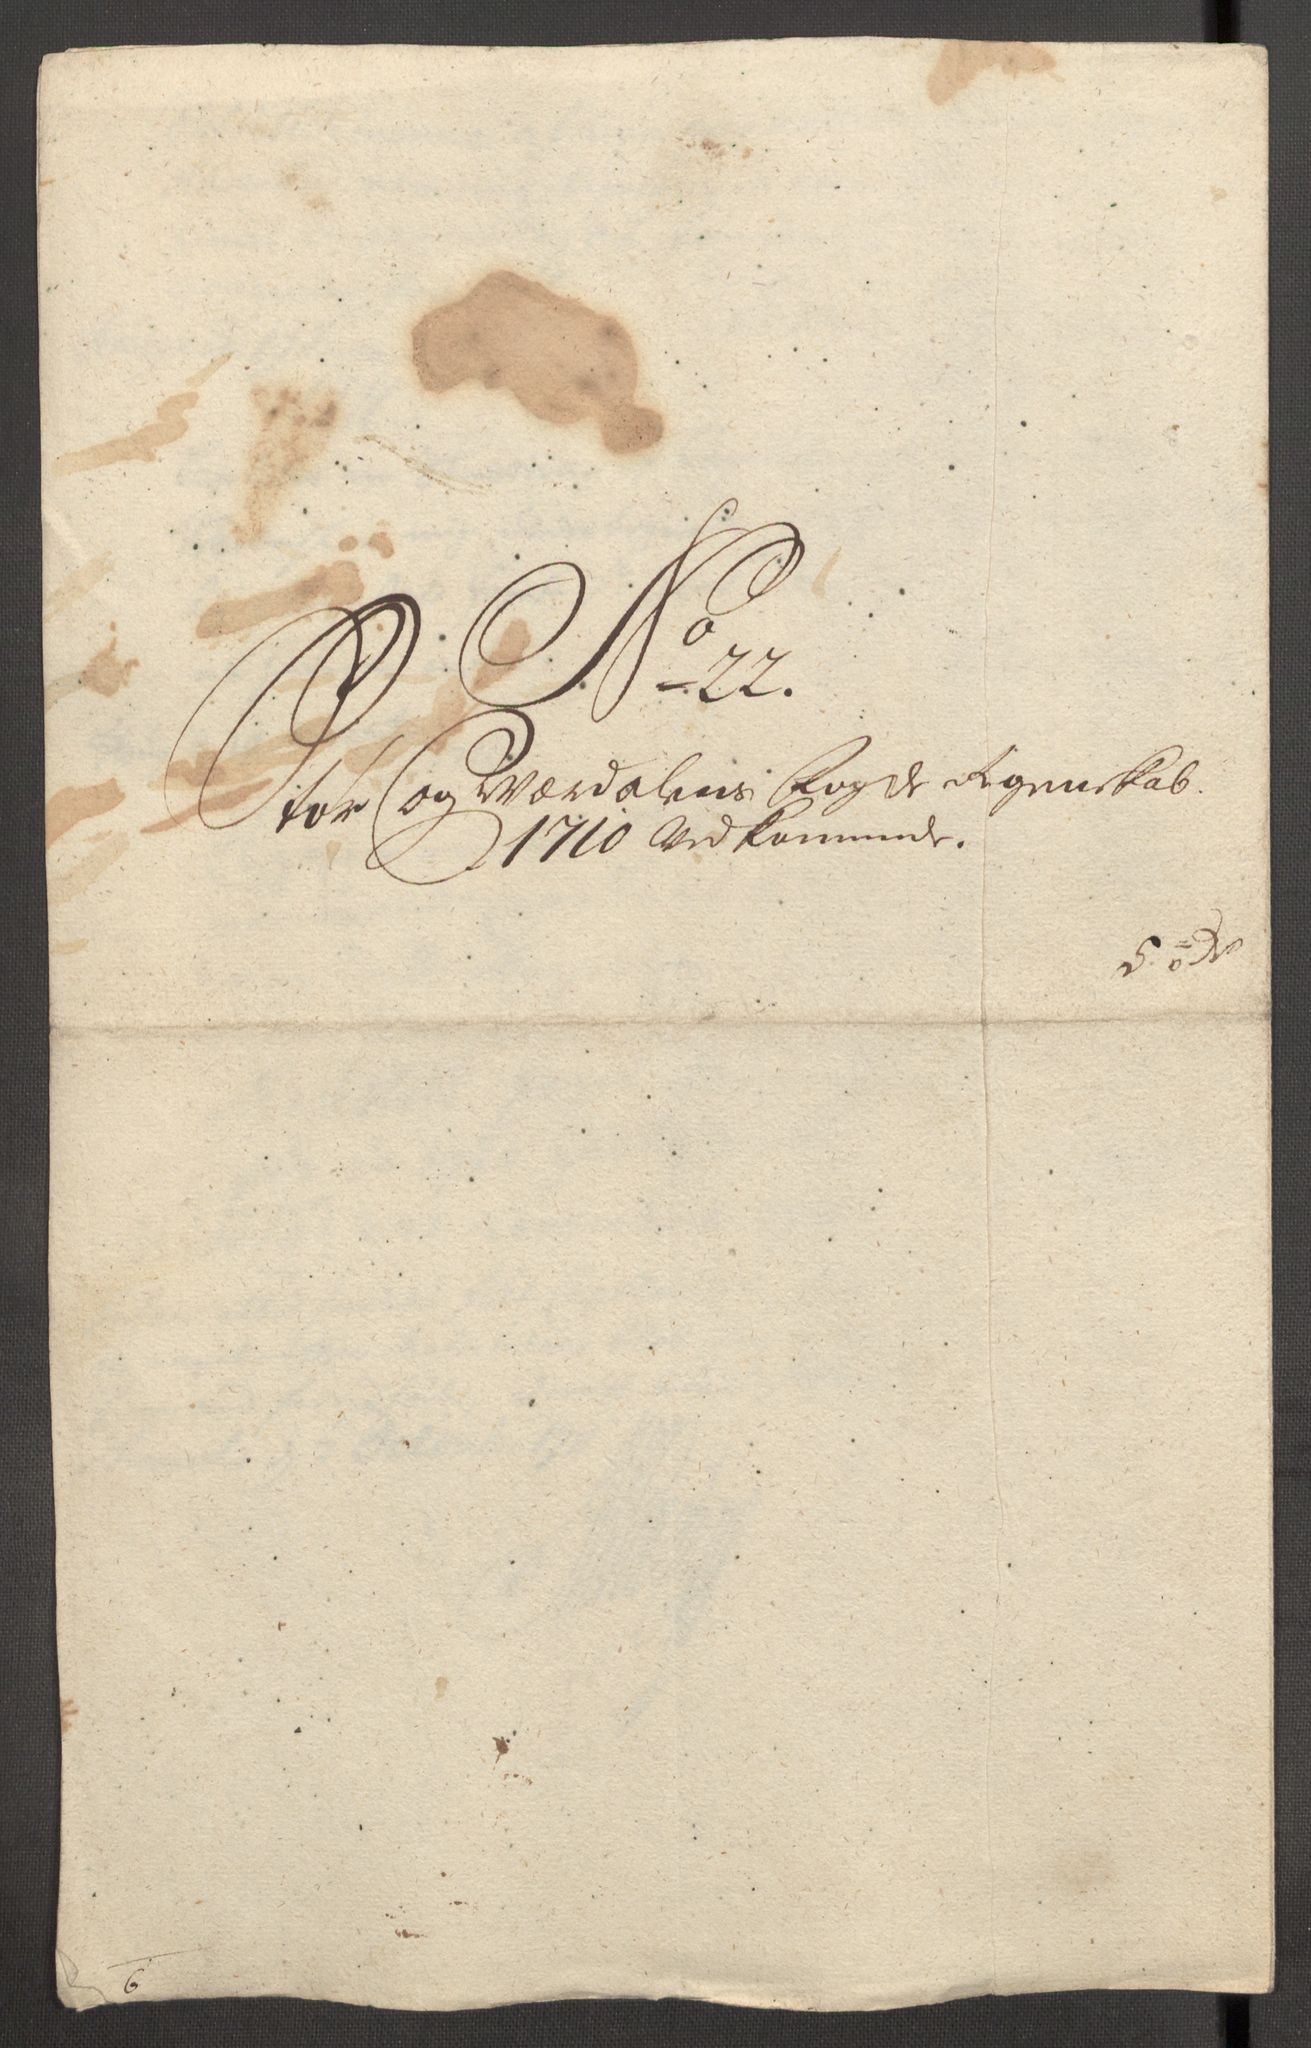 No
22.
Stør og Værdalens Fogde Regenskab.
1710 Vedkommende.
6